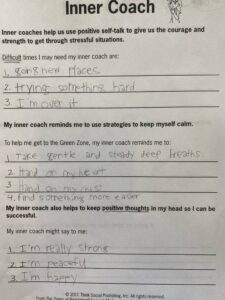 Inner Coach
Inner coaches help us use positive self-talk to give us the courage and
strength to get through stressful situations.
Difficult times I may need my inner coach are:
1. going new places
2. trying something hard
3. I'm over it
My inner coach reminds me to use strategies to keep myself calm.
To help me get to the Green Zone, my inner coach reminds me to:
1. Take gentle and steady deep breaths.
2. Hand on my heart
3. Hand on my
4. find something more easier
My inner coach also helps to keep positive thoughts in my head so I can be
successful.
My inner coach might say to me:
1. I'm really strong
2. I'm peaceful
3. I'm happy
© 2011 Think Social Publishing, Inc. All rights reserved.